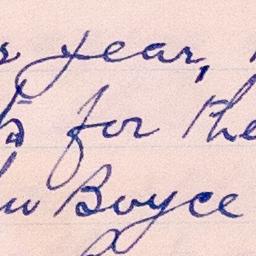 year,
for the
Boyce